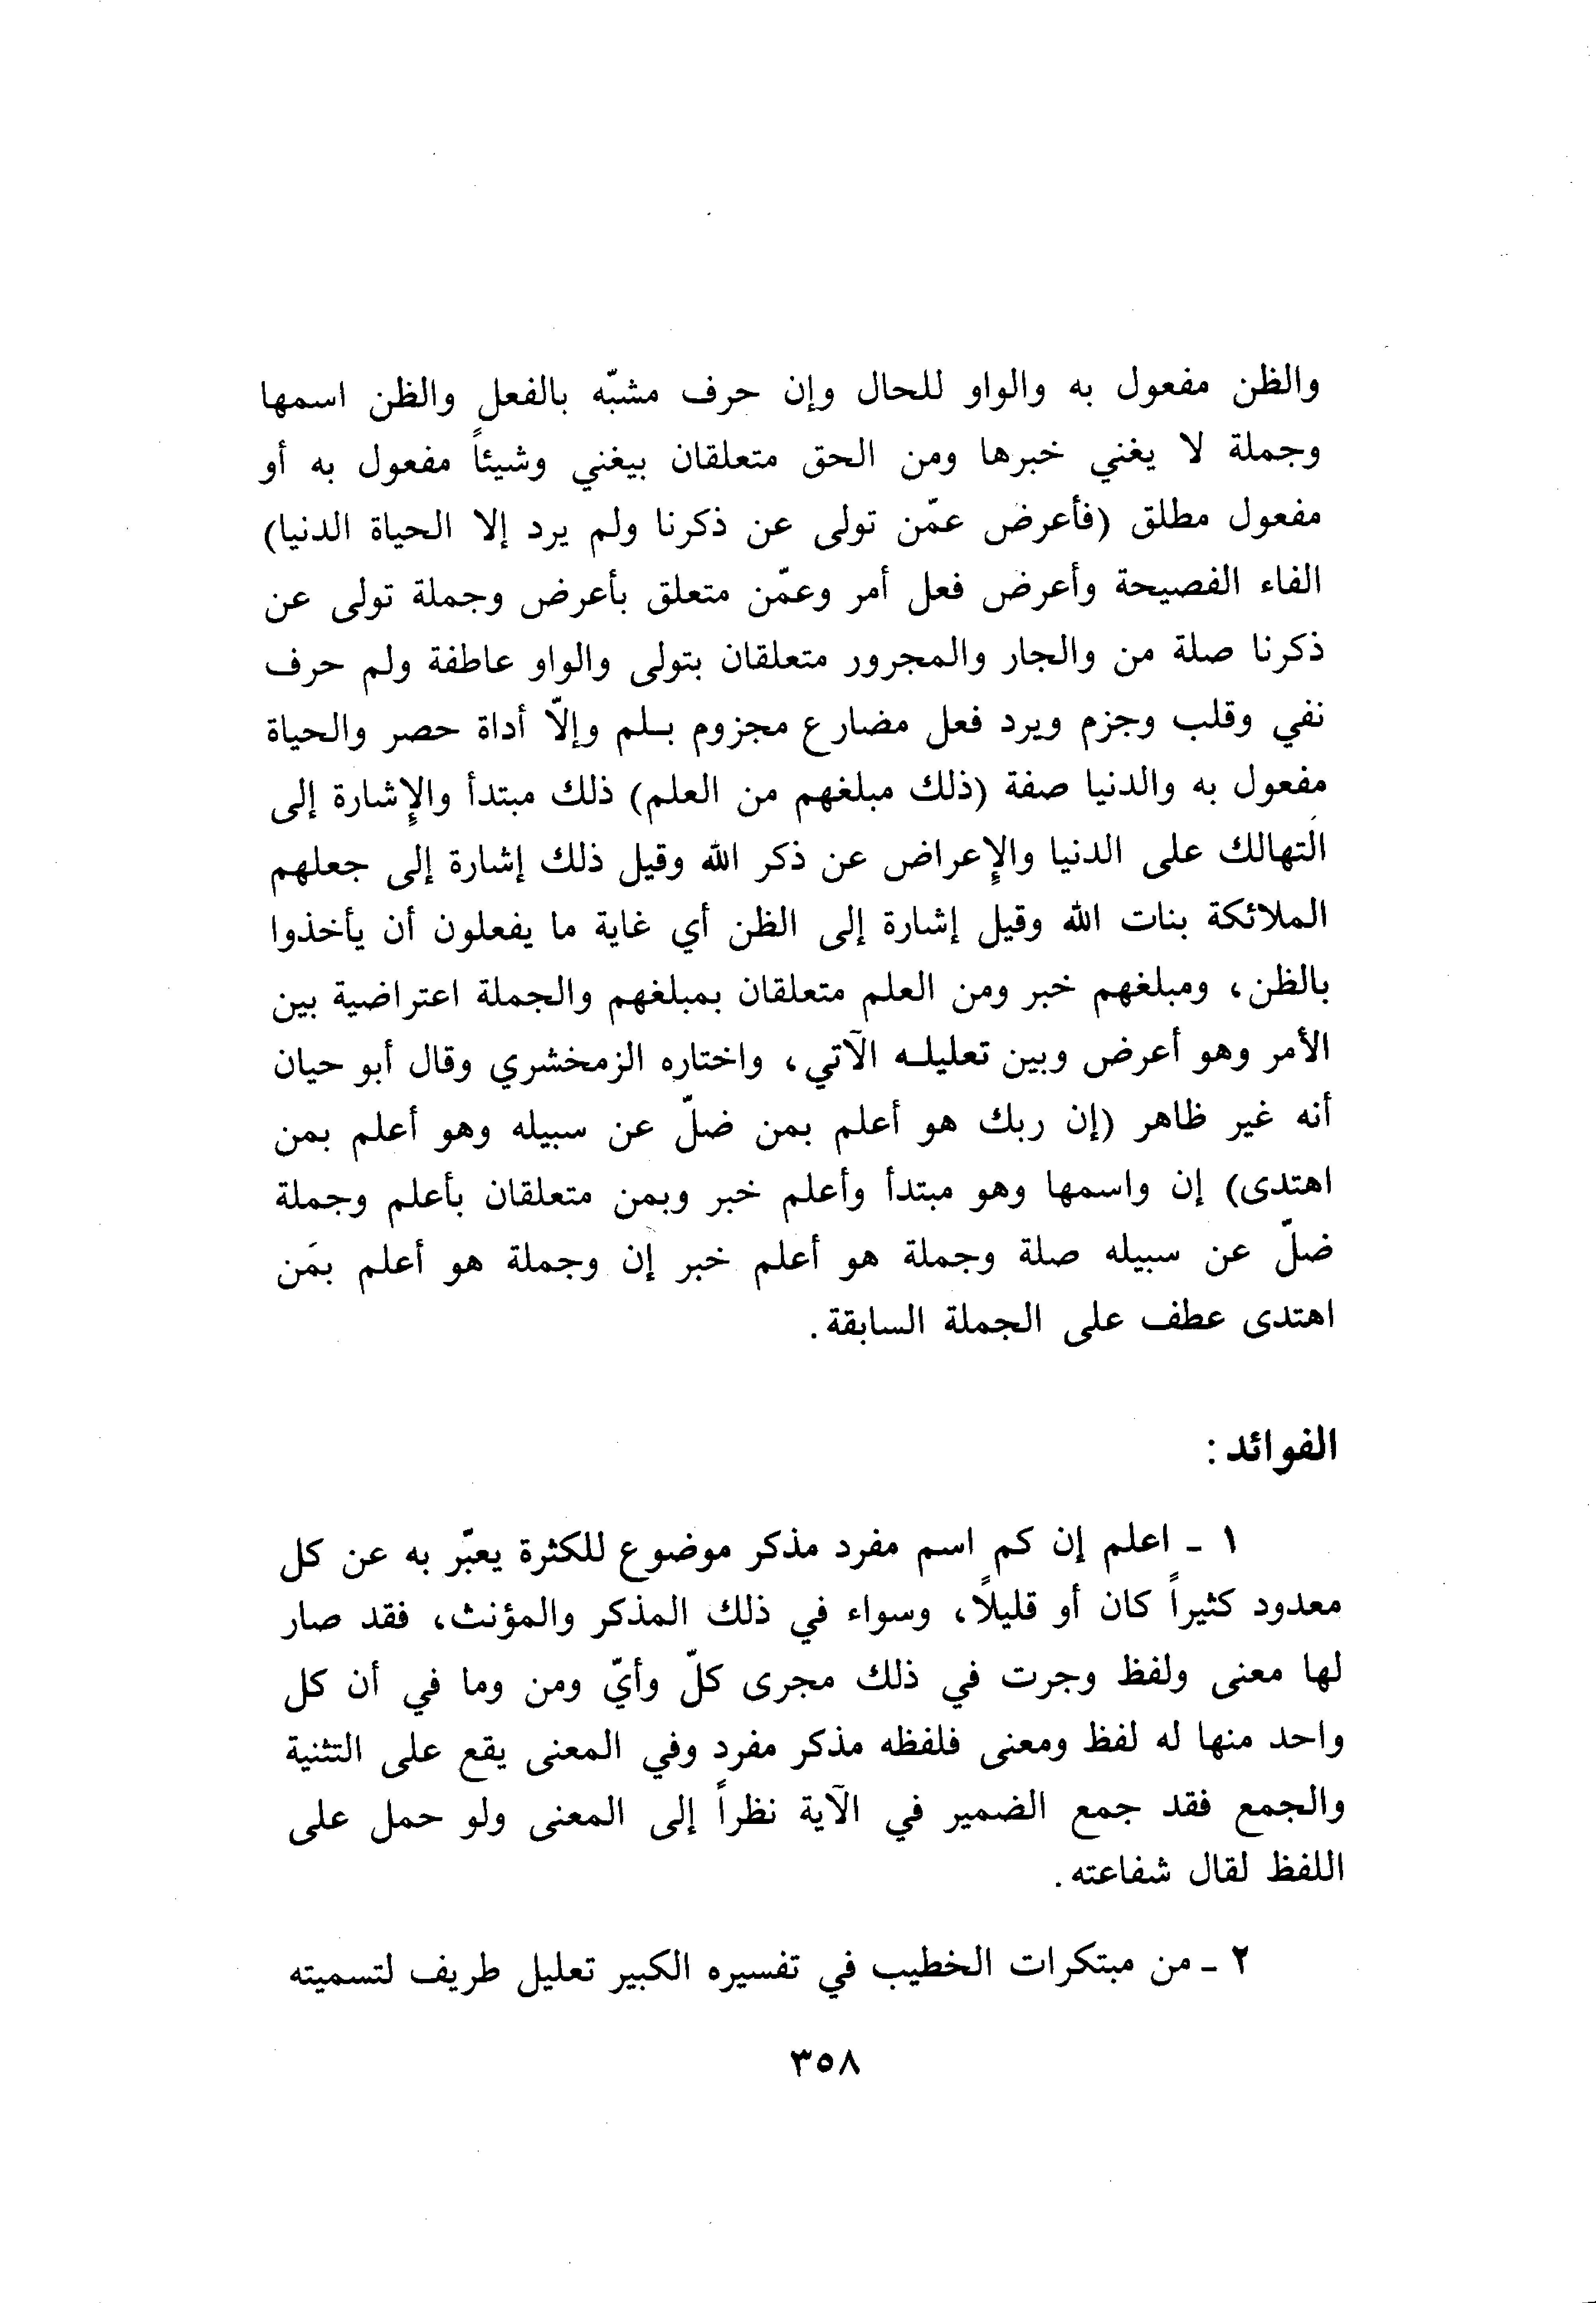 والظن مفعول به والواو للحال وإن حرف مشبّه بالفعل والظن اسمها
وجملة لا يغني خبرها ومن الحق متعلقان بيغني وشيئاً مفعول به أو
مفعول مطلق (فأعرض عمّن تولى عن ذكرنا ولم يرد إلا الحياة الدنيا)
الفاء الفصيحة وأعرض فعل أمر وعمّن متعلق بأعرض وجملة تولى عن
ذكرنا صلة من والجار والمجرور متعلقان بتولى والواو عاطفة ولم حرف
نفي وقلب وجزم ويرد فعل مضارع مجزوم بـلم وإلاّ أداة حصر والحياة
مفعول به والدنيا صفة (ذلك مبلغهم من العلم) ذلك مبتدأ والإشارة إلى
التهالك على الدنيا والإعراض عن ذكر الله وقيل ذلك إشارة إلى جعلهم
الملائكة بنات الله وقيل إشارة إلى الظن أي غاية ما يفعلون أن يأخذوا
بالظن، ومبلغهم خبر ومن العلم متعلقان بمبلغهم والجملة اعتراضية بين
الأمر وهو أعرض وبين تعليلـه الآتي، واختاره الزمخشري وقال أبو حيان
أنه غير ظاهر (إن ربك هو أعلم بمن ضلّ عن سبيله وهو أعلم بمن
اهتدى) إن واسمها وهو مبتدأ وأعلم خبر وبمن متعلقان بأعلم وجملة
ضلّ عن سبيله صلة وجملة هو أعلم خبر إن وجملة هو أعلم بمَن
اهتدى عطف على الجملة السابقة.
الفوائد:
١ - اعلم إن كم اسم مفرد مذكر موضوع للكثرة يعبّر به عن كل
معدود كثيراً كان أو قليلاً، وسواء في ذلك المذكر والمؤنث، فقد صار
لها معنى ولفظ وجرت في ذلك مجرى كلّ وأيّ ومن وما في أن كل
واحد منها له لفظ ومعنى فلفظه مذكر مفرد وفي المعنى يقع على التثنية
والجمع فقد جمع الضمير في الآية نظراً إلى المعنى ولو حمل على
اللفظ لقال شفاعته.
٢ - من مبتكرات الخطيب في تفسيره الكبير تعليل طريف لتسميته
٣٥٨